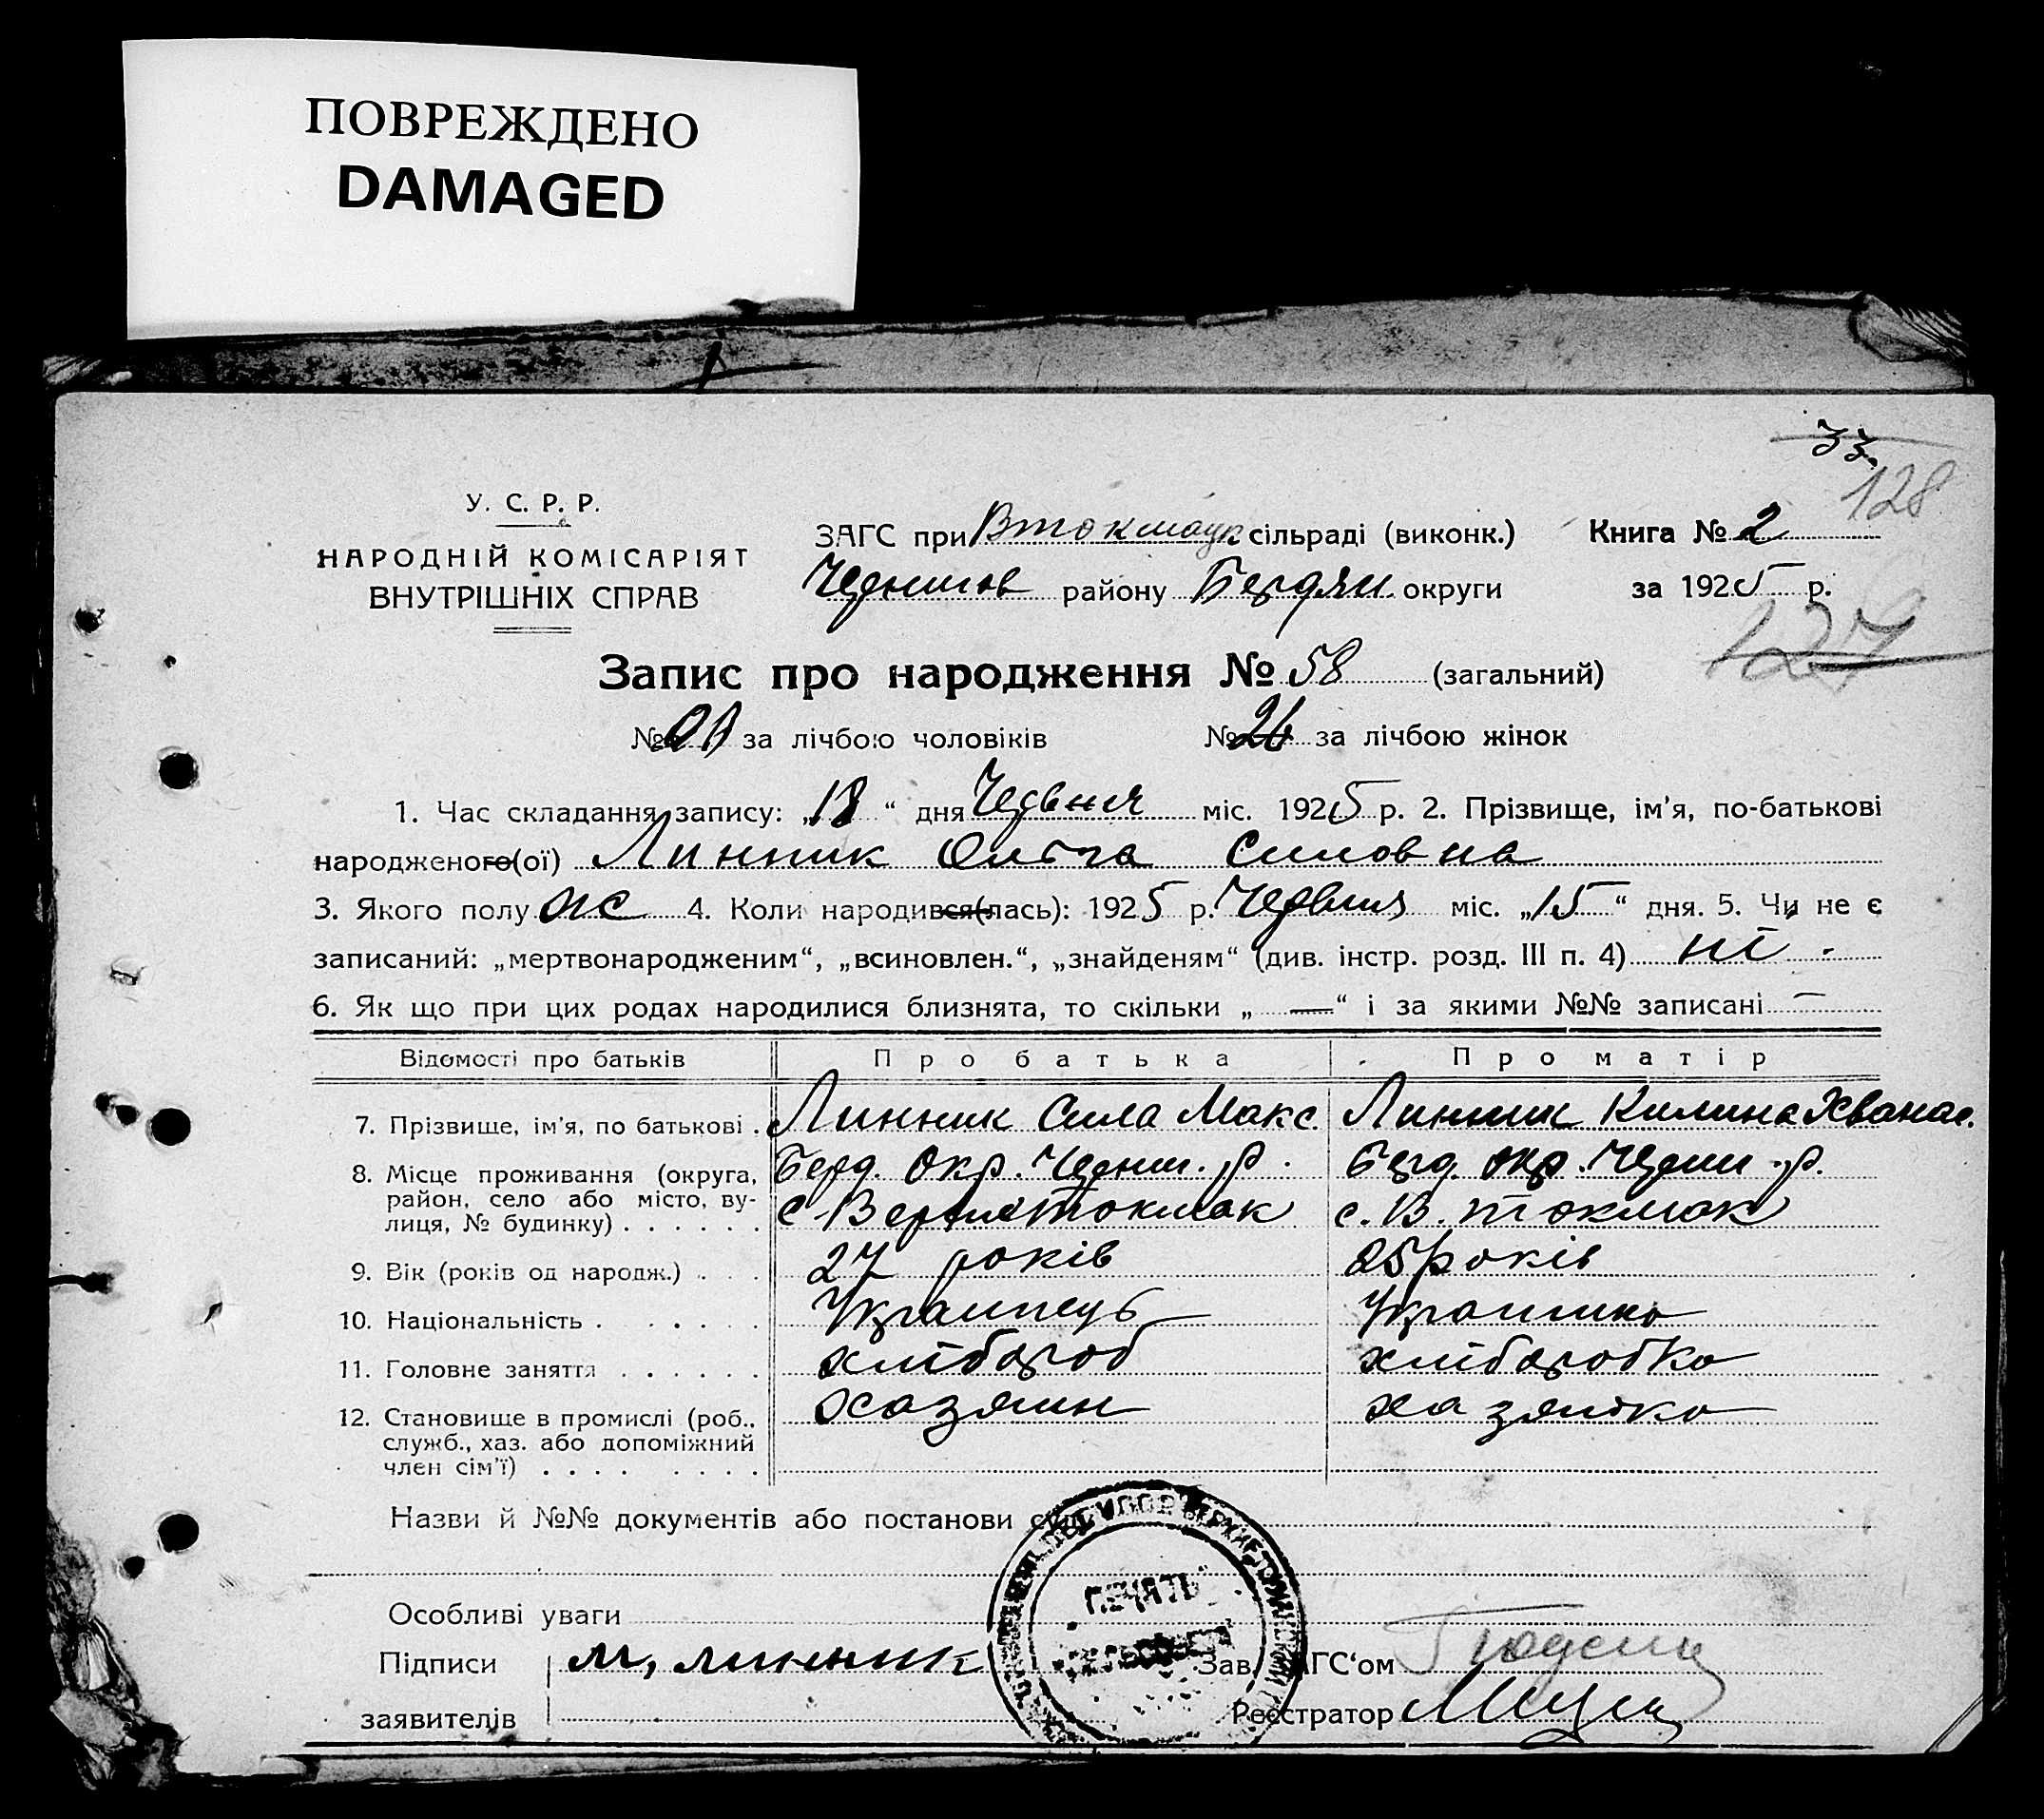 ПОВРЕЖДЕНО
DAMAGED
33
128
У. С. Р. Р.
НАРОДНІЙ КОМІСАРІЯТ
ВНУТРІШНІХ СПРАВ
ЗАГС при Втокмацк сільраді (виконк.) Книга № 2
Чернигов
району Бердян. округи за 1925 р.
127
Запис про народження № 58 (загальний)
№ за лічбою чоловіків № 26 за лічбою жінок
1. Час складання запису: „18“ дня Червня міс. 1925 р. 2. Прізвище, ім'я, по-батькові
народженого(ої) Линник Ольга Силовна
3. Якого полу ж 4. Коли народився(лась): 1925 р. Червня міс. „15“ дня. 5. Чи не є
записаний: „мертвонародженим“, „всиновлен.“, „знайденям“ (див. інстр. розд. III п. 4) ні.
6. Як що при цих родах народилися близнята, то скільки „—“ і за якими №№ записані —
Відомості про батьків Про батька Про матір
7. Прізвище, ім'я, по батькові . Линник Сила Макс. Линник Килина Хванас.
8. Місце проживання (округа, район, село або місто, вулиця, № будинку) . . . . . . Берд. Окр. Черниг. р. Берд. окр. Черниг. р.
с. Верхнетокмак с. В. токмак
9. Вік (років од народж.) . . 27 років 25 років
10. Національність . . . . . . Українець Українка
11. Головне заняття . . . . . . хлібороб хліборобка
12. Становище в промислі (роб., служб., хаз. або допоміжний член сім'ї) . . . . . . . . хазяин хазяйка
Назви й №№ документів або постанови суду
ПЕЧАТЬ
Особливі уваги
Підписи М, линник Зав. ЗАГС‘ом
заявителів Реєстратор